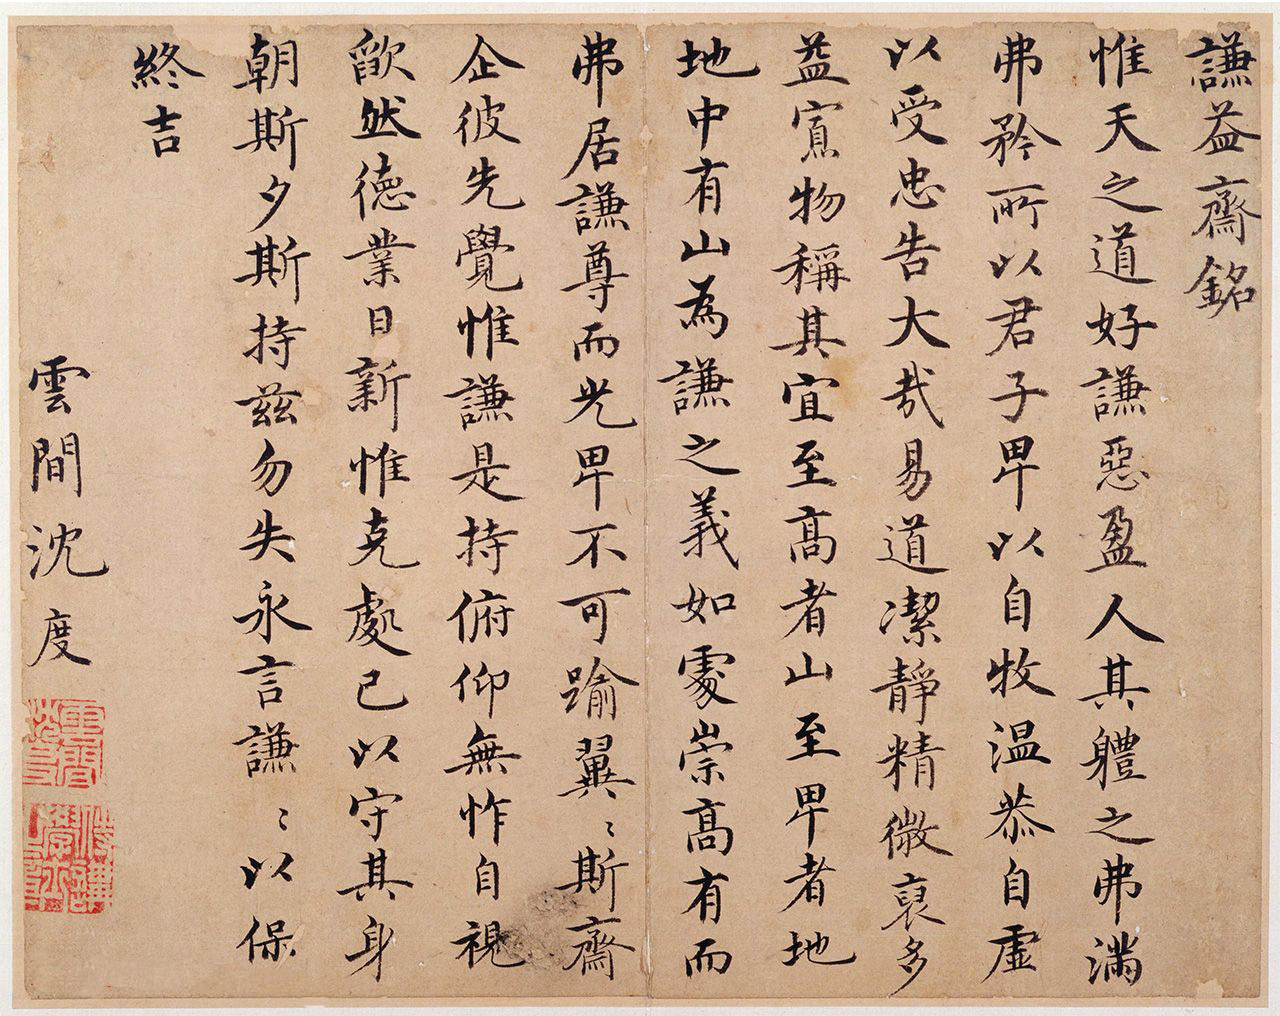 謙益齋銘
惟天之道好謙惡盈人其體之弗滿
弗矜所以君子卑以自牧温恭自虛
以受忠告大哉易道潔靜精微裒多
益寡物稱其宜至高者山至卑者地
地中有山為謙之義如處崇高有而
弗居謙尊而光卑不可踰翼〻斯齋
企彼先覺惟謙是持俯仰無怍自視
歉然德業日新惟克處己以守其身
朝斯夕斯持兹勿失永言謙〻以保
終吉
雲間沈度